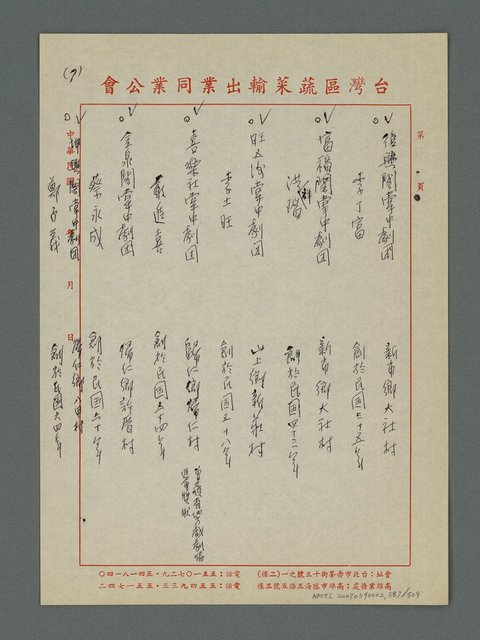 (7)
台灣區蔬菜輸出業同業公會
第　頁
復興閣掌中劇団
李丁富
新市鄉大社村
創於民國三十五年
富福閣掌中劇団
洪瑞
新市鄉大社村
創於民國四十三年
旺五洲掌中劇団
李土旺
山上鄉新莊村
創於民國五十八年
喜樂社掌中劇団
戴進喜
歸仁鄉歸仁村
創於民國三十四年
金泉閣掌中劇団
蔡永成
歸仁鄉許厝村
創於民國五十年
中華民國　年　月　日
興閣掌中劇団
鄭
歸仁鄉八甲村
創於民國六四年
會址：台北市赤峯街十三號之一(二樓)
電話：五五一〇七二九・五四一八一四〇
高雄業務處：高雄市臨海三路五號三樓
電話：五五四九三三・五一五七四二
NMTL 20070590002,387/509